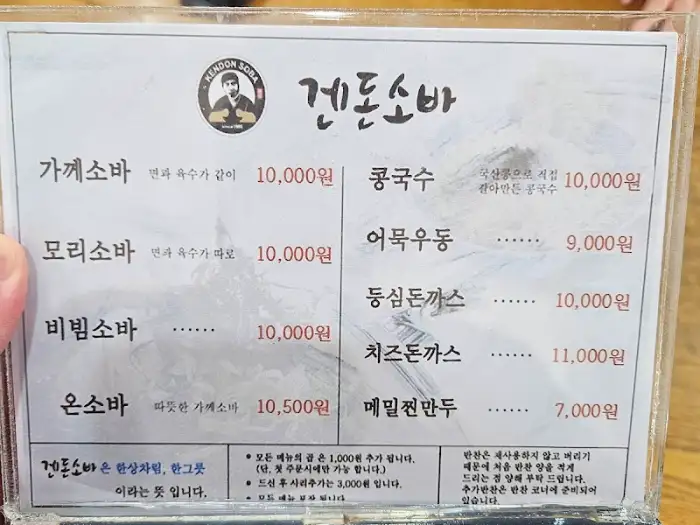 KENDON SOBA
겐돈소바
가께소바 면과 육수가 같이 10,000원
모리소바 면과 육수가 따로 10,000원
비빔소바 ...... 10,000원
온소바 따뜻한 가께소바 10,500원
콩국수 국산콩으로 직접
갈아만든 콩국수 10,000원
어묵우동 ...... 9,000원
등심돈까스 ...... 10,000원
치즈돈까스 ...... 11,000원
메밀찐만두 ...... 7,000원
겐돈소바은 한상차림, 한그릇
이라는 뜻 입니다.
• 모든 메뉴의 곱은 1,000원 추가 됩니다.
(단, 첫 주문시에만 가능 합니다.)
• 드신 후 사리추가는 3,000원 입니다.
• 모든 메뉴 포장 됩니다
반찬은 재사용하지 않고 버리기
때문에 처음 반찬 양을 적게
드리는 점 양해 부탁 드립니다.
추가반찬은 반찬 코너에 준비되어
있습니다.